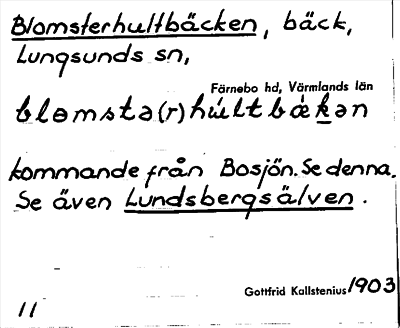 Blomsterhultbäcken, bäck,
Lungsunds sn,
Färnebo hd, Värmlands län
blomstə(r)húltbækən
kommande från Bosjön. Se denna.
Se även Lundsbergsälven.
Gottfrid Kallstenius 1903
11